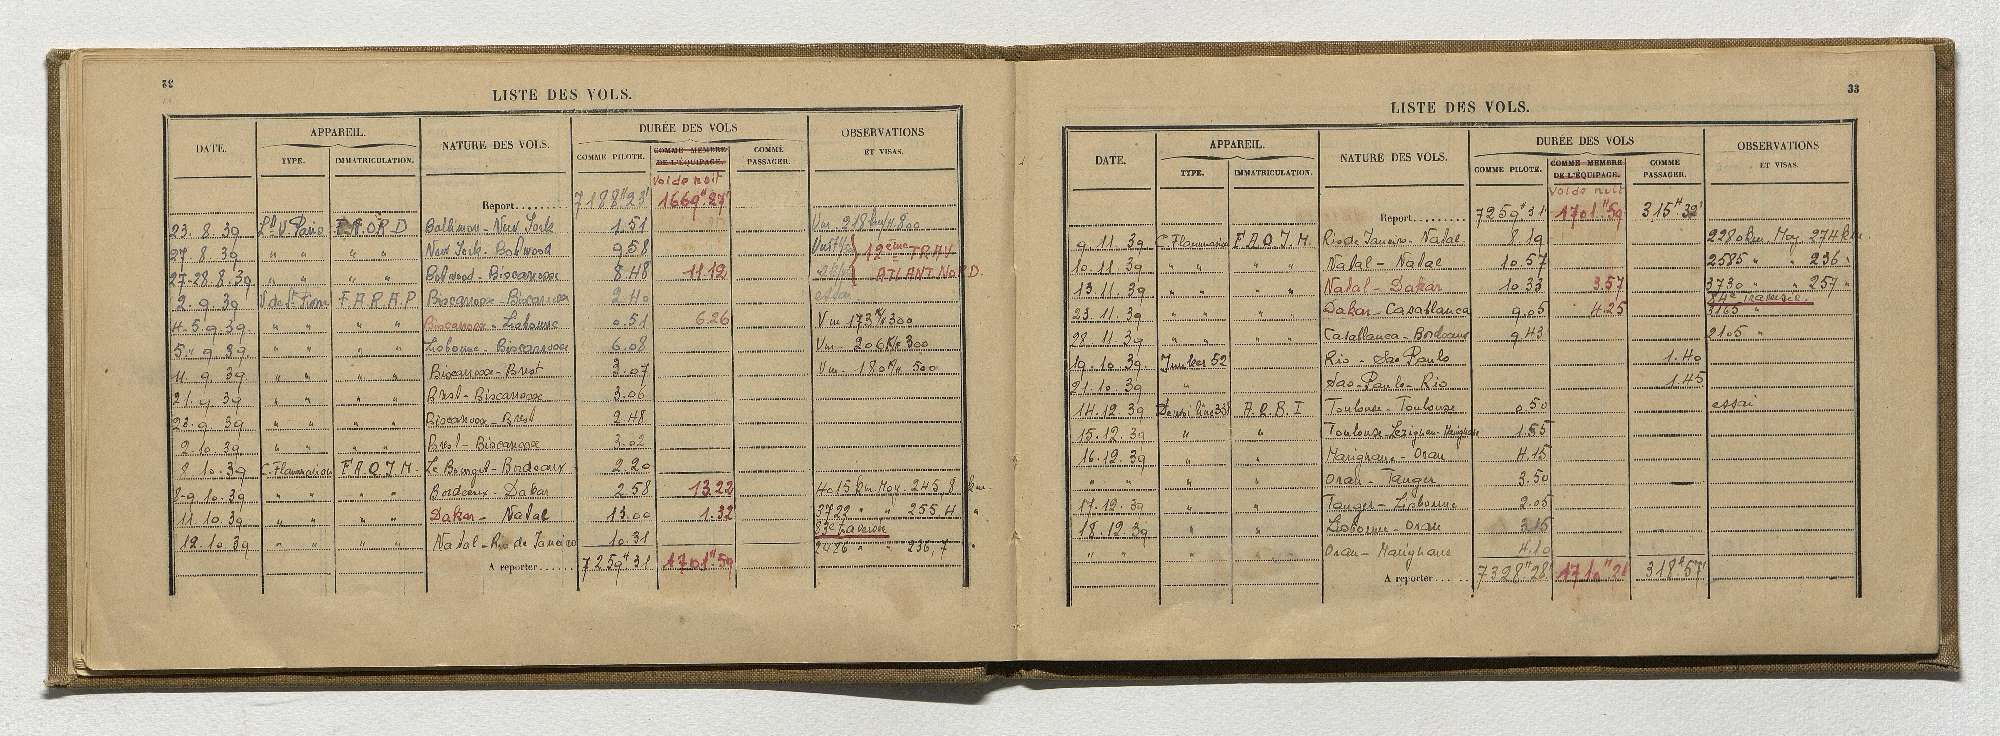 32
LISTE DES VOLS.
DATE. APPAREIL. NATURE DES VOLS. DURÉE DES VOLS OBSERVATIONS ET VISAS.
TYPE. IMMATRICULATION. COMME PILOTE. COMME MEMBRE DE L'ÉQUIPAGE. COMME PASSAGER.
Vol de nuit
Report........ 7188H23' 1669H27'
23.8.39 Lt V Paris F.A.O.R.D Baltimore - New York 1.51 Vm - 218 km/h 800
27.8.39 " " " " New York - Botwood 9.58 12ème TRAV
27-28.8.39 " " " " Botwood - Biscarrosse 8.48 11.12 ATLANT NORD.
2.9.39 V de St Pierre F.A.R.A.P Biscarrosse - Biscarrosse 2.40 essai
4.5.9.39 " " " " Biscarrosse - Lisbonne 0.51 6.26 Vm 173 K/h 300
5.9.39 " " " " Lisbonne - Biscarrosse 6.08 Vm - 206 K/h 300
11.9.39 " " " " Biscarrosse - Brest 3.07 Vm - 180 K/h 500
21.9.39 " " " " Brest - Biscarrosse 3.06
22.9.39 " " " " Biscarrosse - Brest 2.48
2.10.39 " " " " Brest - Biscarrosse 3.02
8.10.39 C. Flammarion F.A.Q.J.M. Le Bourget - Bordeaux 2.20
8-9.10.39 " " " " Bordeaux - Dakar 2.58 13.22 4015 km Moy 245,8 km
11.10.39 " " " " Dakar - Natal 13.00 1.32 3722 " " 255,4 "
83e Traversée
12.10.39 " " " " Natal - Rio de Janeiro 10.31 2486 " " 236,7 "
A reporter...... 7259H31 1701H59
33
LISTE DES VOLS.
DATE. APPAREIL. NATURE DES VOLS. DURÉE DES VOLS OBSERVATIONS ET VISAS.
TYPE. IMMATRICULATION. COMME PILOTE. COMME MEMBRE DE L'ÉQUIPAGE. COMME PASSAGER.
Vol de nuit
Report........ 7259H31' 1701H59 315H32'
9.11.39 C. Flammarion F.A.Q.J.M. Rio de Janeiro - Natal 8.19 2280 km Moy. 274 km.
10.11.39 " " " " Natal - Natal 10.57 2585 " " 236 "
13.11.39 " " " " Natal - Dakar 10.33 3.57 3730 " " 257 "
84e traversée
23.11.39 " " " " Dakar - Casablanca 9.05 4.25 3165 "
28.11.39 " " " " Casablanca - Bordeaux 9.43 2105 "
19.10.39 Junker 52 Rio - Sao Paulo 1.40
21.10.39 " Sao Paulo - Rio 1.45
14.12.39 Dewoitine 338 A.Q.B.I Toulouse - Toulouse 0.50 essai
15.12.39 " " Toulouse - Lézignan - Marignane 1.55
16.12.39 " " Marignane - Oran 4.15
" " " " Oran - Tanger 3.50
17.12.39 " " Tanger - Lisbonne 2.05
18.12.39 " " Lisbonne - Oran 3.15
" " " " Oran - Marignane 4.10
A reporter...... 7328H28' 1710H21 318H57'